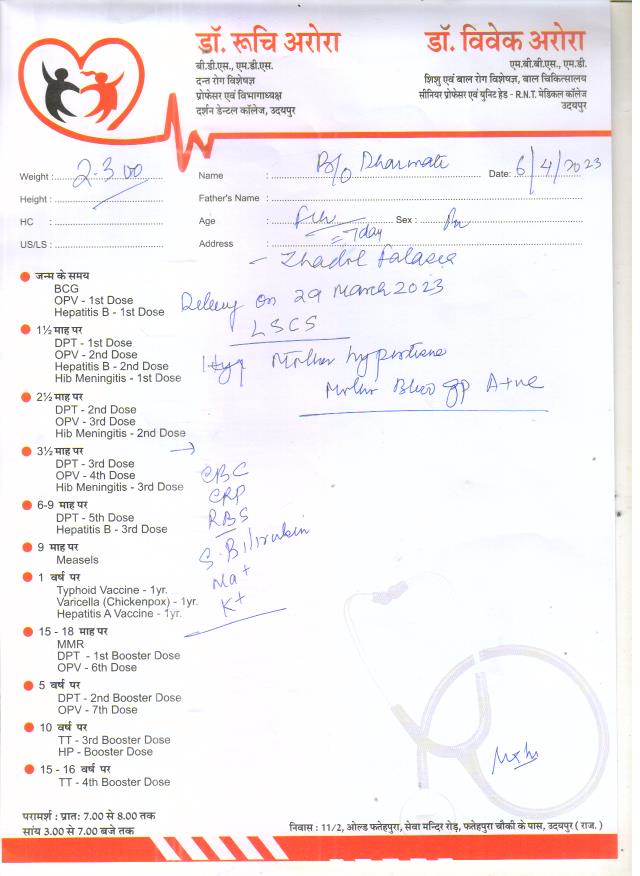 डॉ. रूचि अरोरा
बी.डी.एस., एम.डी.एस.
दन्त रोग विशेषज्ञ
प्रोफेसर एवं विभागाध्यक्ष
दर्शन डेन्टल कॉलेज, उदयपुर
डॉ. विवेक अरोरा
एम.बी.बी.एस., एम.डी.
शिशु एवं बाल रोग विशेषज्ञ, बाल चिकित्सालय
सीनियर प्रोफेसर एवं युनिट हेड - R.N.T. मेडिकल कॉलेज
उदयपुर
Weight : 2.300
Name : B/o Dharmati Date: 6/4/2023
Height :
Father's Name :
HC :
Age : 7 day Sex :
US/LS :
Address :
Jhadol Falasia
Delivery on 29 March 2023
LSCS
Mother hypertensive
Mother Blood gp A+ve
CBC
CRP
RBS
S. Bilirubin
Na+
K+
जन्म के समय
BCG
OPV - 1st Dose
Hepatitis B - 1st Dose
1½ माह पर
DPT - 1st Dose
OPV - 2nd Dose
Hepatitis B - 2nd Dose
Hib Meningitis - 1st Dose
2½ माह पर
DPT - 2nd Dose
OPV - 3rd Dose
Hib Meningitis - 2nd Dose
3½ माह पर
DPT - 3rd Dose
OPV - 4th Dose
Hib Meningitis - 3rd Dose
6-9 माह पर
DPT - 5th Dose
Hepatitis B - 3rd Dose
9 माह पर
Measels
1 वर्ष पर
Typhoid Vaccine - 1yr.
Varicella (Chickenpox) - 1yr.
Hepatitis A Vaccine - 1yr.
15 - 18 माह पर
MMR
DPT - 1st Booster Dose
OPV - 6th Dose
5 वर्ष पर
DPT - 2nd Booster Dose
OPV - 7th Dose
10 वर्ष पर
TT - 3rd Booster Dose
HP - Booster Dose
15 - 16 वर्ष पर
TT - 4th Booster Dose
परामर्श : प्रातः 7.00 से 8.00 तक
सांय 3.00 से 7.00 बजे तक
निवास : 11/2, ओल्ड फतेहपुरा, सेवा मन्दिर रोड़, फतेहपुरा चौकी के पास, उदयपुर ( राज. )